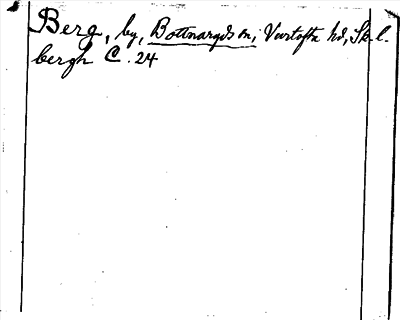 Berg, by, Bottnaryds sn, Vartofta hd, Sk. l.
bergh C. 24